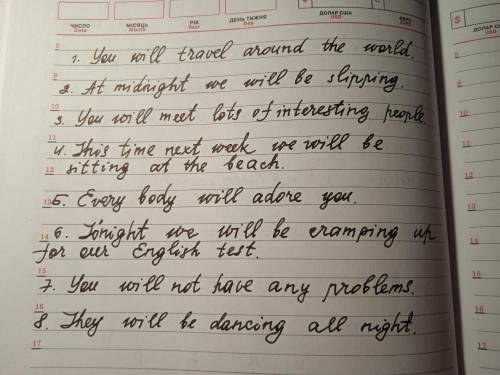 ЧИСЛО МІСЯЦЬ РІК ДЕНЬ ТИЖНЯ ДОЛАР США ЄВРО
Date Month Year Day USD
8 1. You will travel around the world.
9 2. At midnight we will be slipping.
10 3. You will meet lots of interesting people.
11 4. This time next week we will be
12 sitting at the beach.
13 5. Every body will adore you.
14 6. Tonight we will be cramping up
for our English test.
15
7. You will not have any problems.
16
8. They will be dancing all night.
17
$
ДОЛАР
USD
8
9
10
11
12
13
14
15
16
17